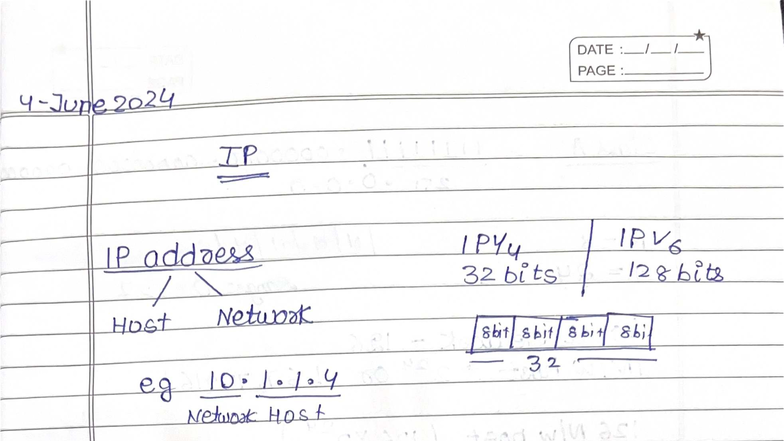 DATE :__/__/__
PAGE :________
4-June 2024
IP
IP address
Host Network
IPV4 | IPV6
32 bits 128 bits
8bit 8bit 8bit 8bi
32
eg 10.1.1.4
Network Host